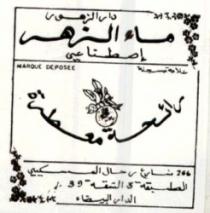 دار الزهور
ماء الزهر
إصطناعي
MARQUE DEPOSEE
علامة مسجلة
رائحة معطرة
246 شارع رحال المسكيني
الطابق 3 الشقة 39
الدار البيضاء